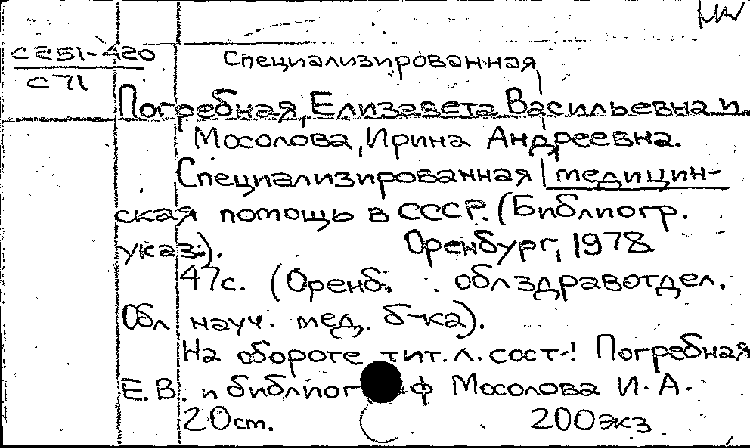 Специализированная
С251-420
С71
Погребная, Елизавета Васильевна и
Мосолова, Ирина Андреевна.
Специализированная медицин-
ская помощь в СССР. (Библиогр.
указ.). Оренбург, 1978.
47с. (Оренб. облздравотдел.
Обл. науч. мед. б-ка).
На обороте тит. л. сост.: Погребная
Е.В. и Мосолова И.А.
20см. 200экз.